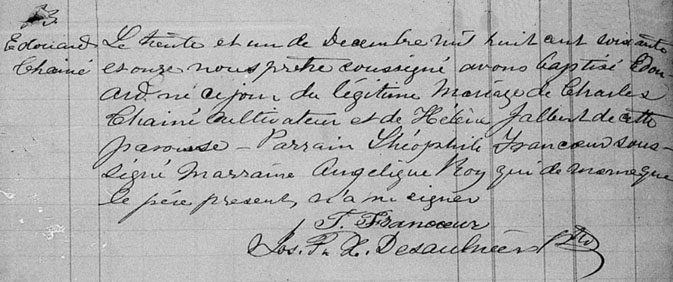 B
Edouard Le trente et un de Decembre mil huit cent soixante
Chainé et onze nous prêtre soussigné avons baptisé Edou-
ard né ce jour du légitime Mariage de Charles
Chainé cultivateur et de Hélène Jalbert de cette
paroisse – Parrain Théophile Francœur sous-
signé Marraine Angelique Roy qui de meme que
le père present, n'a su signer
T. Francœur
Jos. F. X. Desaulniers Ptre